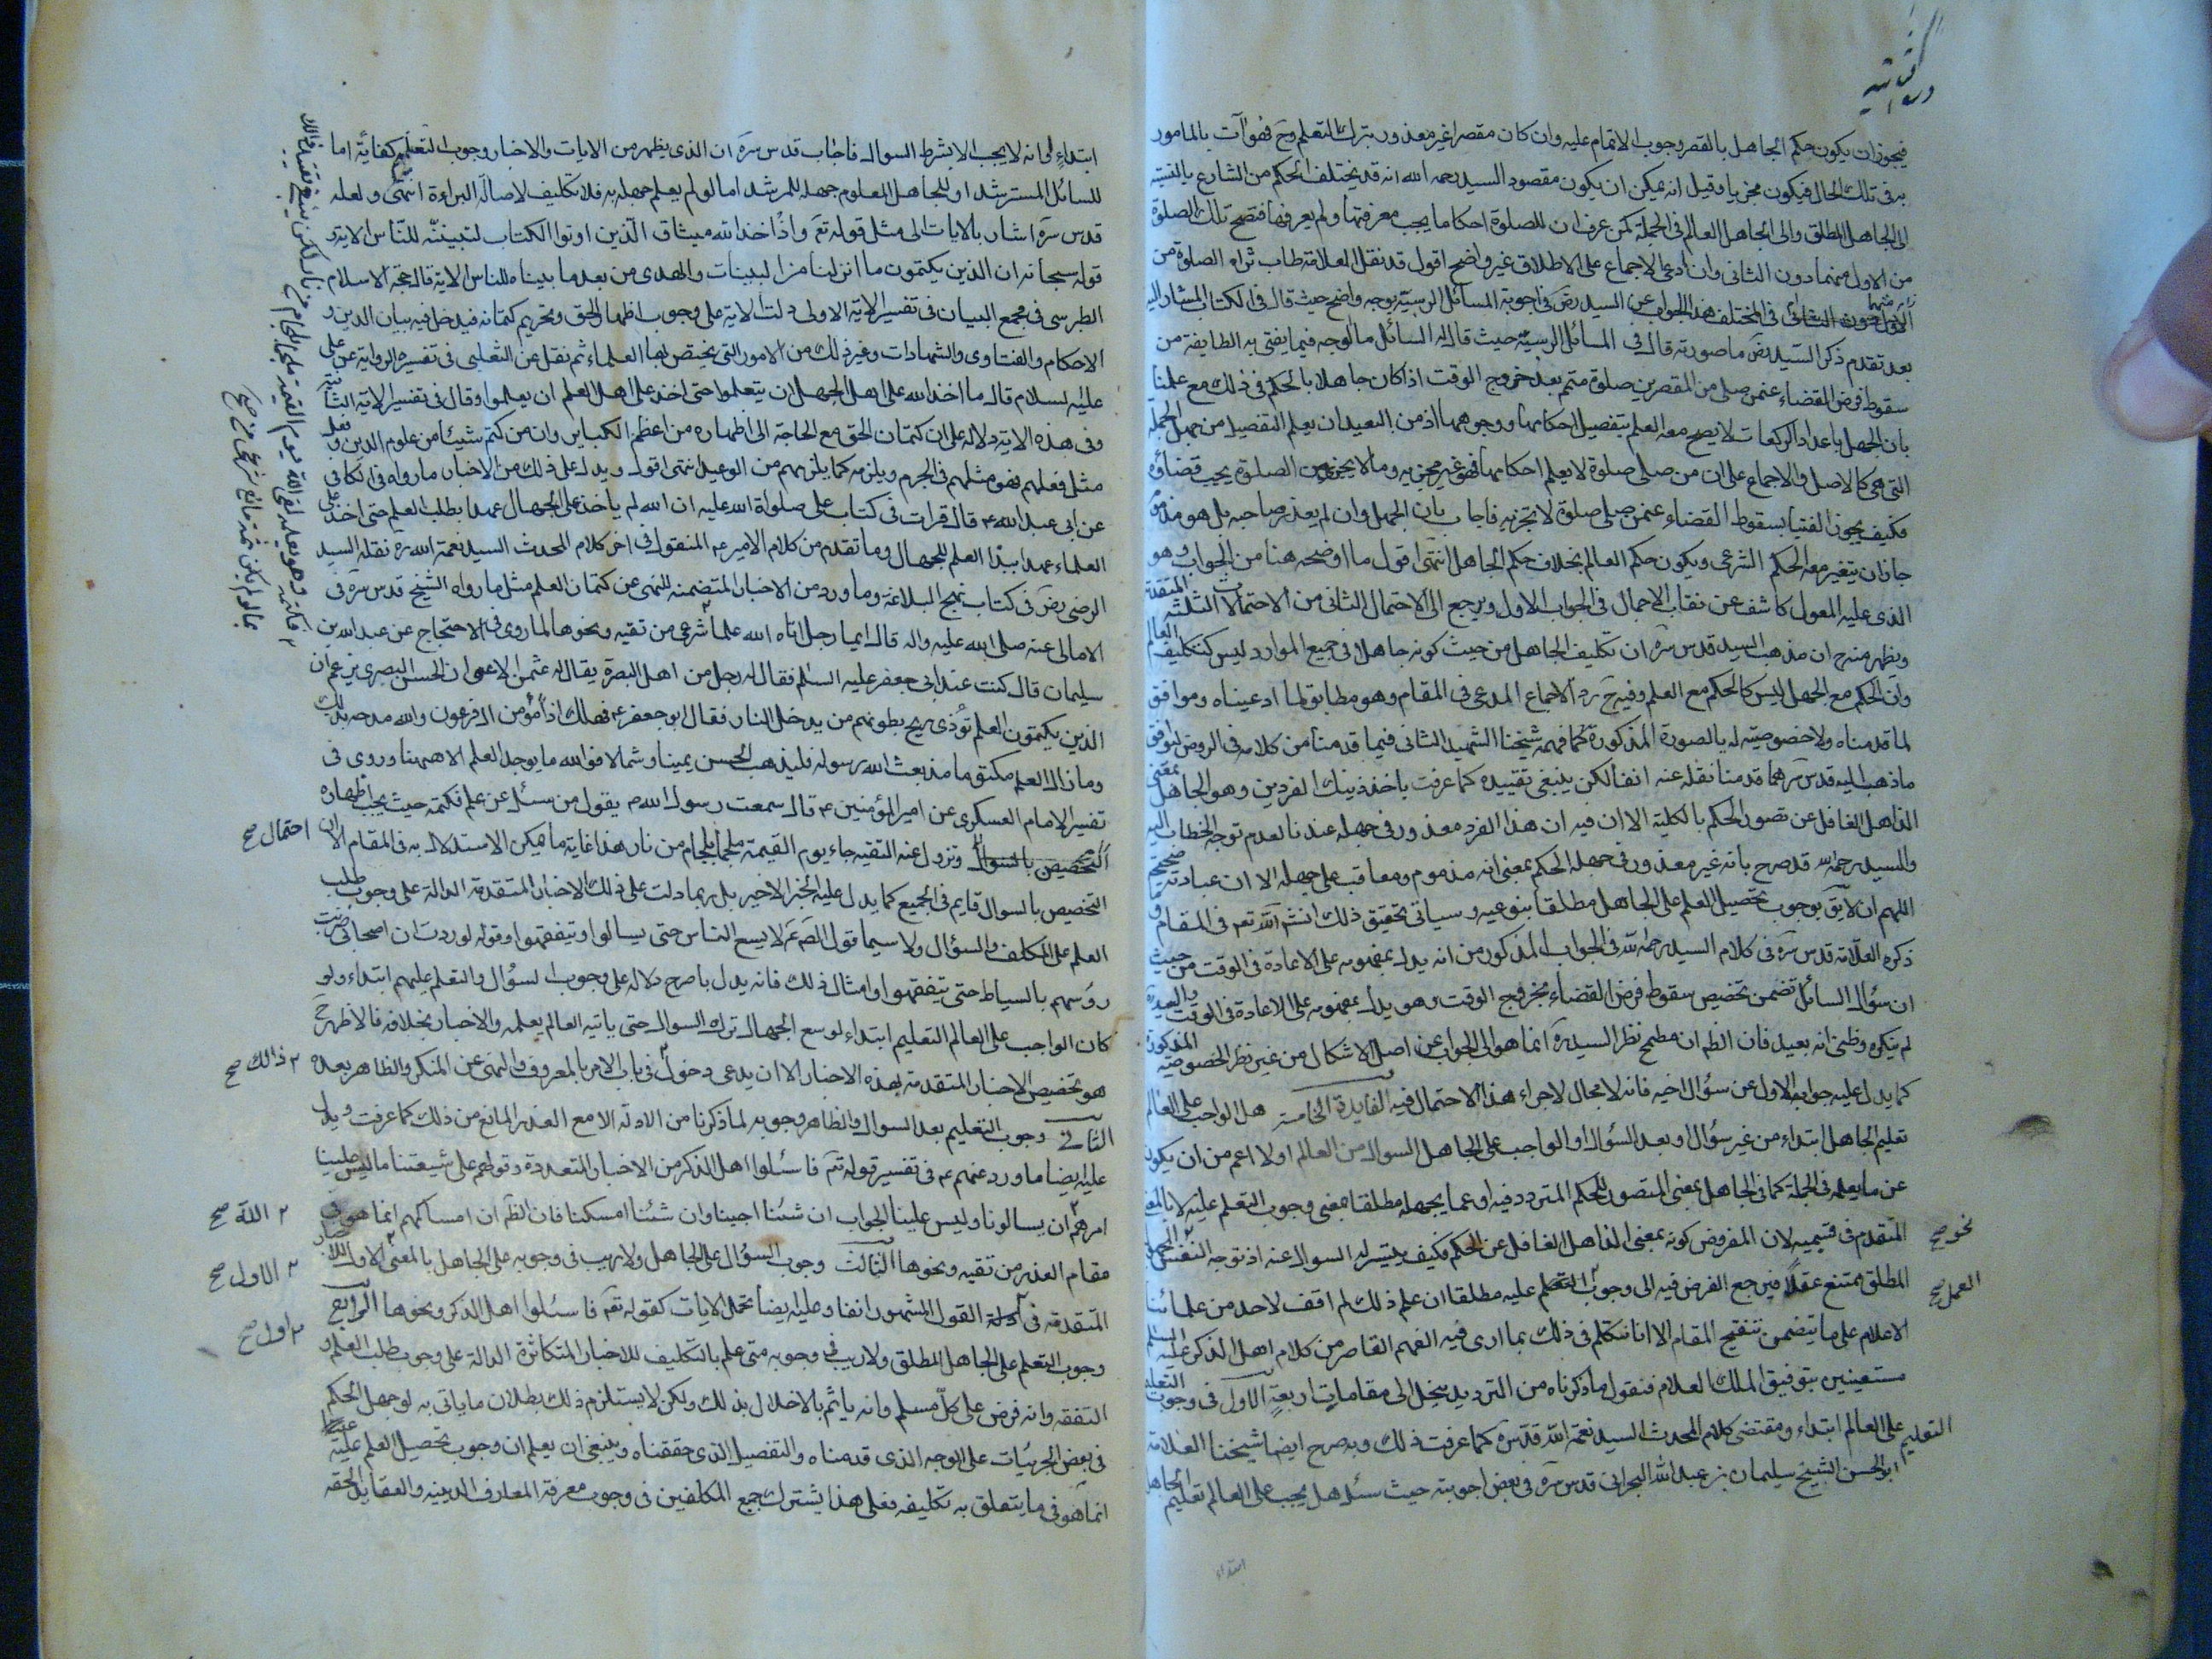 فيجوز ان يكون حكم الجاهل بالقصر وجوب الاتمام عليه وان كان مقصرا غير معذور بترك التعلم وح فهو آت بالمامور
به فى تلك الحال فيكون مجزيا وقيل انه يمكن ان يكون مقصود السيد رحمه الله انه قد يختلف الحكم من الشارع بالنسبة
الى الجاهل المطلق والى الجاهل العالم فى الجملة كمن عرف ان للصلوة احكاما يجب معرفتها ولم يعرفها فتصح تلك الصلوة
من الاول منهما دون الثانى وان ادعى الاجماع على الاطلاق غير واضح اقول قد نقل العلامة طاب ثراه
فى المختلف هذا الجواب عن السيد رض فى اجوبة المسائل الرسية بوجه واضح حيث قال فى الكتاب المشار اليه
بعد تقدم ذكر السيد رض ما صورته قال فى المسائل الرسية حيث قال له السائل ما الوجه فيما يفتى به الطايفة من
سقوط فرض القضاء عمن صلى من المقصرين صلوة متمم بعد خروج الوقت اذا كان جاهلا بالحكم فى ذلك مع علمنا
بان الجهل باعداد الركعات لا يصح معه العلم بتفصيل احكامها ووجوهها اذ من البعيد ان يعلم التفصيل من جهل الجملة
التى هى كالاصل والاجماع على ان من صلى صلوة لا يعلم احكامها فهو غير مجزية وما لا يجزى من الصلوة يجب قضاؤه
فكيف يجوز الفتيا بسقوط القضاء عمن صلى صلوة لا تجزيه فاجاب بان الجهل وان لم يعذر صاحبه بل هو مذموم
جاز ان يتغير معه الحكم الشرعى ويكون حكم العالم بخلاف حكم الجاهل انتهى اقول ما اوضحه هنا من الجواب وهو
الذى عليه المعول كاشف عن نقاب الاجمال فى الجواب الاول ويرجع الى الاحتمال الثانى من الاحتمالات الثلثة المتقدمة
ويظهر منه ح ان مذهب السيد قدس سره ان تكليف الجاهل من حيث كونه جاهلا فى جميع الموارد ليس كتكليف العالم
وان الحكم مع الجهل ليس كالحكم مع العلم وفيه ح رد الاجماع المدعى فى المقام وهو مطابق لما ادعيناه وموافق
لما قدمناه ولا خصوصية له بالصورة المذكورة كما فهمه شيخنا الشهيد الثانى فيما قدمنا من كلامه فى الروض
ما ذهب اليه قدس سرهما قدمنا نقله عنه انفا لكن ينبغى تقييده كما عرفت باخذ ذينك الفردين وهو الجاهل بمعنى
الذاهل الغافل عن تصور الحكم بالكلية الا ان فيه ان هذا الفرد معذور فى جهله عندنا لعدم توجه الخطاب اليه
والسيد رحمه الله قد صرح بانه غير معذور فى جهله الحكم بمعنى انه مذموم ومعاقب على جهله الا ان عبادته صحيحة
اللهم ان لا يق بوجوب تحصيل العلم على الجاهل مطلقا بنوعيه وسياتى تحقيق ذلك انشاء الله تعم فى المقام
ذكره العلامة قدس سره فى كلام السيد رحمه الله فى الجواب المذكور من انه يدل بمفهومه على الاعادة فى الوقت من حيث
ان سؤال السائل تضمن تخصيص سقوط فرض القضاء بخروج الوقت وهو يدل بمفهومه على الاعادة فى الوقت
لم ينكره وظنى انه بعيد فان الظم ان مطمح نظر السيد ره انما هو الى الجواب عن اصل الاشكال من غير نظر الخصوصية المذكورة
كما يدل عليه جوابه الاول عن سؤال اخيه فانه لا مجال لاجراء هذا الاحتمال فيه الفايدة الخامسة هل الواجب على العالم
تعليم الجاهل ابتداء من غير سؤال او بعد السؤال او الواجب على الجاهل السوال من العالم او لا اعم من ان يكون
عن ما يعلمه فى الجملة كما فى الجاهل بمعنى المتصور للحكم المتردد فيه او عما يجهله مطلقا بمعنى وجوب التعلم عليه لا بالمعنى
المتقدم فى قسيميه لان المفروض كونه بمعنى الذاهل الغافل عن الحكم فكيف يتيسر له السوال عنه اذ توجه النفس نحو المجهول
نحو صح
المطلق ممتنع عقلا فيرجع الفرض فيه الى وجوب العلم عليه مطلقا ان علم ذلك لم اقف لاحد من علمائنا
العمل صح
الاعلام على ما يتضمن تنقيح المقام الا انا نتكلم فى ذلك بما ادى فيه الفهم القاصر من كلام اهل الذكر عليهم السلم
مستعينين بتوفيق الملك العلام فنقول ما ذكرناه من الترديد ينحل الى مقامات اربعة الاول فى وجوب
التعليم على العالم ابتداء ومقتضى كلام المحدث السيد نعمة الله قدس سره كما عرفت ذلك وبه صرح ايضا شيخنا العلامة
ابو الحسن الشيخ سليمان بن عبد الله البحرانى قدس سره فى بعض اجوبته حيث سئل هل يجب على العالم تعليم الجاهل
ابتداء
ابتداء ام لا انه لا يجب الا بشرط السوال فاجاب قدس سره ان الذى يظهر من الايات والاخبار وجوب التعليم كفاية اما
للسائل المسترشد او للجاهل المعلوم جهله للمرشد اما لو لم يعلم جهله به فلا تكليف لاصالة البراءة انتهى ولعله
قدس سره اشار بالايات الى مثل قوله تعم واذ اخذ الله ميثاق الذين اوتوا الكتاب لتبيننه للناس الاية و
قوله سبحانه ان الذين يكتمون ما انزلنا من البينات والهدى من بعد ما بيناه للناس الاية قال حجة الاسلام
الطبرسى فى مجمع البيان فى تفسير الاية الاولى دلت الاية على وجوب اظهار الحق وتحريم كتمانه فيدخل فيه بيان الدين و
الاحكام والفتاوى والشهادات وغير ذلك من الامور التى يختص بها العلماء ثم نقل عن الثعلبى فى تفسيره الرواية عن على
عليه السلام قال ما اخذ الله على اهل الجهل ان يتعلموا حتى اخذ على اهل العلم ان يعلموا وقال فى تفسير الاية الثانية
وفى هذه الاية دلالة على ان كتمان الحق مع الحاجة الى اظهاره من اعظم الكباير وان من كتم شيئا من علوم الدين وفعل
مثل فعلهم فهو مثلهم فى الجرم ويلزمه كما يلزمهم من الوعيد انتهى اقول ويدل على ذلك من الاخبار ما رواه فى الكافى
عن ابى عبد الله ع قال قرات فى كتاب على صلواة الله عليه ان الله لم ياخذ على الجهال عهدا بطلب العلم حتى اخذ على
العلماء عهدا ببذل العلم للجهال وما تقدم من كلام الامير ع المنقول فى اخر كلام المحدث السيد نعمة الله ره نقله السيد
الرضى رض فى كتاب نهج البلاغة وما ورد من الاخبار المتضمنة للنهى عن كتمان العلم مثل ما رواه الشيخ قدس سره فى
الامالى عنه صلى الله عليه واله قال ايما رجل اتاه الله علما شرعى من تقيه ونحوها لما روى فى الاحتجاج عن عبد الله بن
سليمان قال كنت عند ابى جعفر عليه السلم فقال له رجل من اهل البصرة يقال له عثمن الاعمى ان الحسن البصرى يزعم ان
الذين يكتمون العلم تؤذى ريح بطونهم من يدخل النار فقال ابو جعفر ع فهلك اذا مؤمن ال فرعون والله مدحه بذلك
وما زال العلم مكتوما منذ بعث الله رسوله فليذهب الحسن يمينا وشمالا فوالله ما يوجد العلم الا ههنا وروى فى
تفسير الامام العسكرى عن امير المؤمنين ع قال سمعت رسول الله ص يقول من سئل عن علم فكتمه حيث يجب اظهاره
وتزول عنه التقيه جاء يوم القيمة ملجما بلجام من نار هذا غاية ما يمكن الاستدلال به فى المقام الا ان
احتمال صح
التخصيص بالسوال قايم فى الجميع كما يدل عليه الخبر الاخير بل ربما دلت على ذلك الاخبار المتقدمة الدالة على وجوب طلب
العلم على المكلف والسؤال ولا سيما قول الصم عم لا يسع الناس حتى يسالوا ويتفقهوا وقوله لوددت ان اصحابى ضربت
رؤسهم بالسياط حتى يتفقهوا وامثال ذلك فانه يدل باصرح دلالة على وجوب السؤال والتعلم عليهم ابتداء ولو
كان الواجب على العالم التعليم ابتداء لوسع الجهال ترك السوال حتى ياتيه العالم يعلمه والاخبار بخلافه فالاظهر ح
هو تخصيص الاخبار المتقدمة بهذه الاخبار الا ان يدعى دخول فى باب الامر بالمعروف والنهى عن المنكر والظاهر بعده
ذلك صح
الثانى وجوب التعليم بعد السوال والظاهر وجوبه لما ذكرنا من الادلة الا مع العذر المانع من ذلك كما عرفت ويدل
عليه ايضا ما ورد عنهم ع فى تفسير قوله تعم فاسئلوا اهل الذكر من الاخبار المتعددة وقولهم على شيعتنا ما ليس علينا
امرهم ان يسالونا وليس علينا الجواب ان شئنا اجبنا وان شئنا امسكنا فان الظم ان امساكهم انما هو فى
الله صح
مقام العذر من تقيه ونحوها الثالث وجوب السؤال على الجاهل ولا ريب فى وجوبه على الجاهل بالمعنى الاول للاخبار
الاول صح
المتقدمة فى القول المشهور انفا وعليه ايضا تحمل الايات كقوله تعم فاسئلوا اهل الذكر ونحوها الرابع
اول صح
وجوب التعلم على الجاهل المطلق ولا ريب فى وجوبه متى علم بالتكليف للاخبار المتكاثرة الدالة على وجوب طلب العلم و
التفقه وانه فرض على كل مسلم وانه ياثم بالاخلال بذلك ولكن لا يستلزم ذلك بطلان ما ياتى به لو جهل الحكم
فى بعض الجزئيات على الوجه الذى قدمناه والتفصيل الذى حققناه وينبغى ان يعلم ان وجوب تحصيل العلم عليه
انما هو فى ما يتعلق به تكليفه فعلى هذا يشترك جميع المكلفين فى وجوب معرفة المعارف الدينيه والعقايد الحقه
فكتمه وهو يعلمه لقى الله يوم القيمة ملجما بلجام من نار لكن ينبغى تقييد ذلك
بما لو لم يكن ثمة مانع شرعى صح